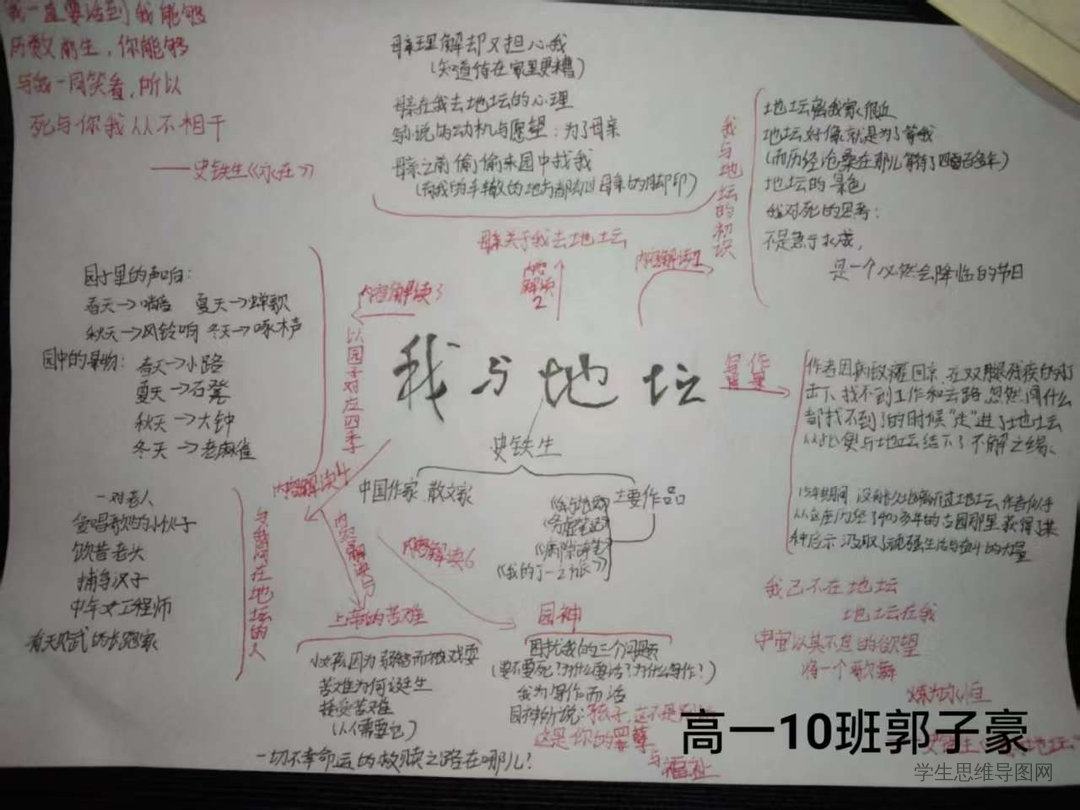 我一直要活到我能够
历数前生，你能够
与我一同笑看，所以
死与你我从不相干
——史铁生《永在》
母亲理解却又担心我
(知道待在家里更糟)
母亲在我去地坛的心理
小说的动机与愿望：为了母亲
母亲之前偷偷来园中找我
(有我的车辙的地方都有母亲的脚印)
母亲关于我去地坛
内容解读2
我与地坛的初识
内容解读1
地坛离我家很近
地坛好像就是为了等我
(而历经沧桑在那儿等待了四百多年)
地坛的景色
我对死的思考：
不是急于求成，
是一个必然会降临的节日
内容解读3
以园子对应四季
园子里的声响：
春天→鸽哨 夏天→蝉歌
秋天→风铃响 冬天→啄木声
园中的景物：春天→小路
夏天→石凳
秋天→大钟
冬天→老麻雀
我与地坛
史铁生
中国作家 散文家
主要作品
《我与地坛》
《务虚笔记》
《病隙碎笔》
《我的丁一之旅》
写作背景
作者因病致瘫回京，在双腿残疾的打
击下，找不到工作和去路，忽然间什么
都找不到了的时候"走"进了地坛
从此便与地坛结下了不解之缘、
15年期间，没有长久地离开过地坛，作者似乎
从这座历经了400多年的古园那里获得了某
种启示，汲取了顽强生活与奋斗的力量
内容解读4
与我同在地坛的人
一对老人
爱唱歌的小伙子
饮者老头
捕鸟汉子
中年女工程师
有天赋的长跑家
内容解读5
上帝的苦难
小女孩因为弱智而被戏耍
苦难为何诞生
接受苦难
(人人需要它)
一切不幸命运的救赎之路在哪儿？
内容解读6
园神
困扰我的三个问题
(要不要死？为什么要活？为什么写作？)
我为写作而活
园神所说：孩子，这不是别的
这是你的罪孽
与福祉
我已不在地坛
地坛在我
宇宙以其不息的欲望
将一个歌舞
炼为永恒
高一10班郭子豪
学生思维导图网